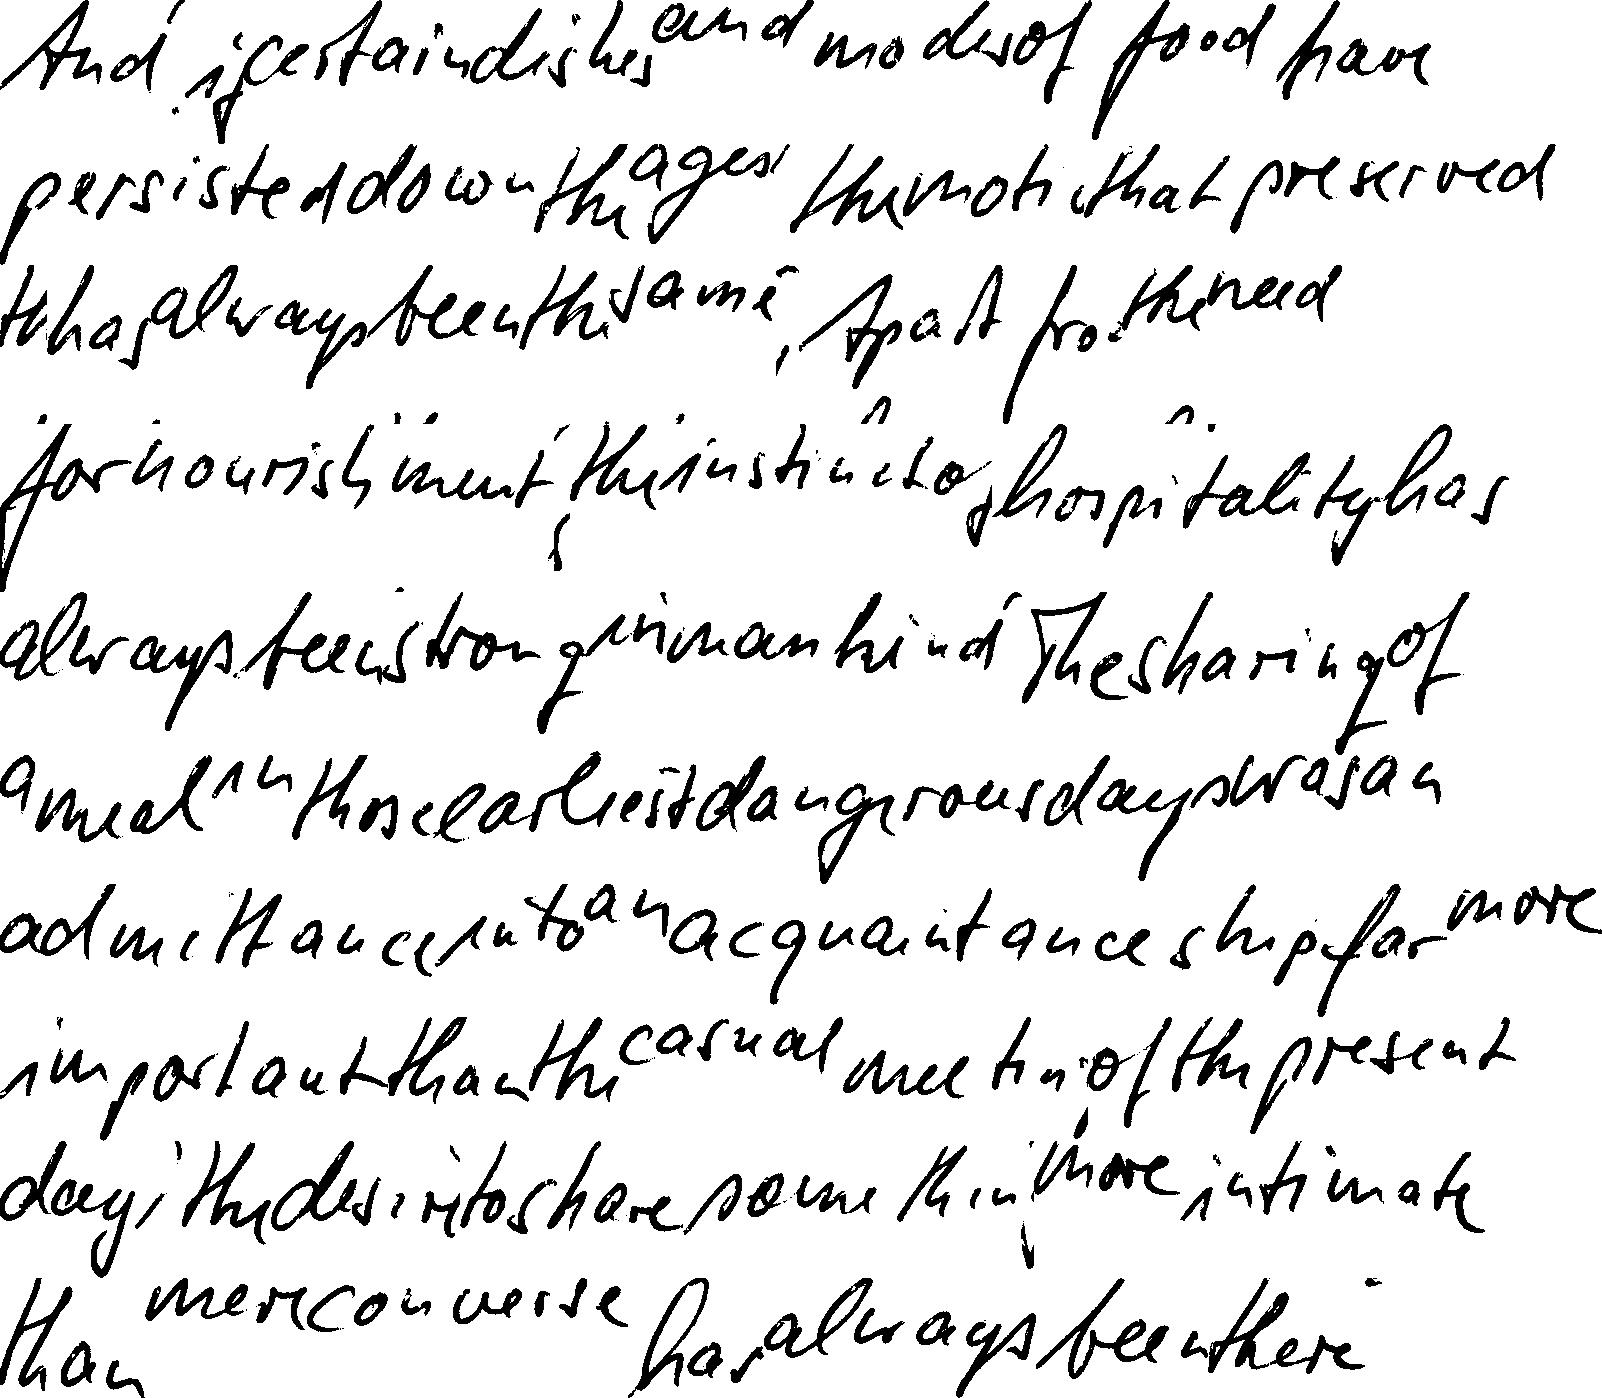 And if certain dishes and modes of food have
persisted down the ages the motive that preserved
them has always been the same. Apart from the need
for nourishment, the instinct of hospitality has
always been strong in mankind The sharing of
a meal in those earliest dangerous days was an
admittance into an acquaintanceship far more
important than the casual meeting of the present
day; the desire to share something more intimate
than mere converse has always been there